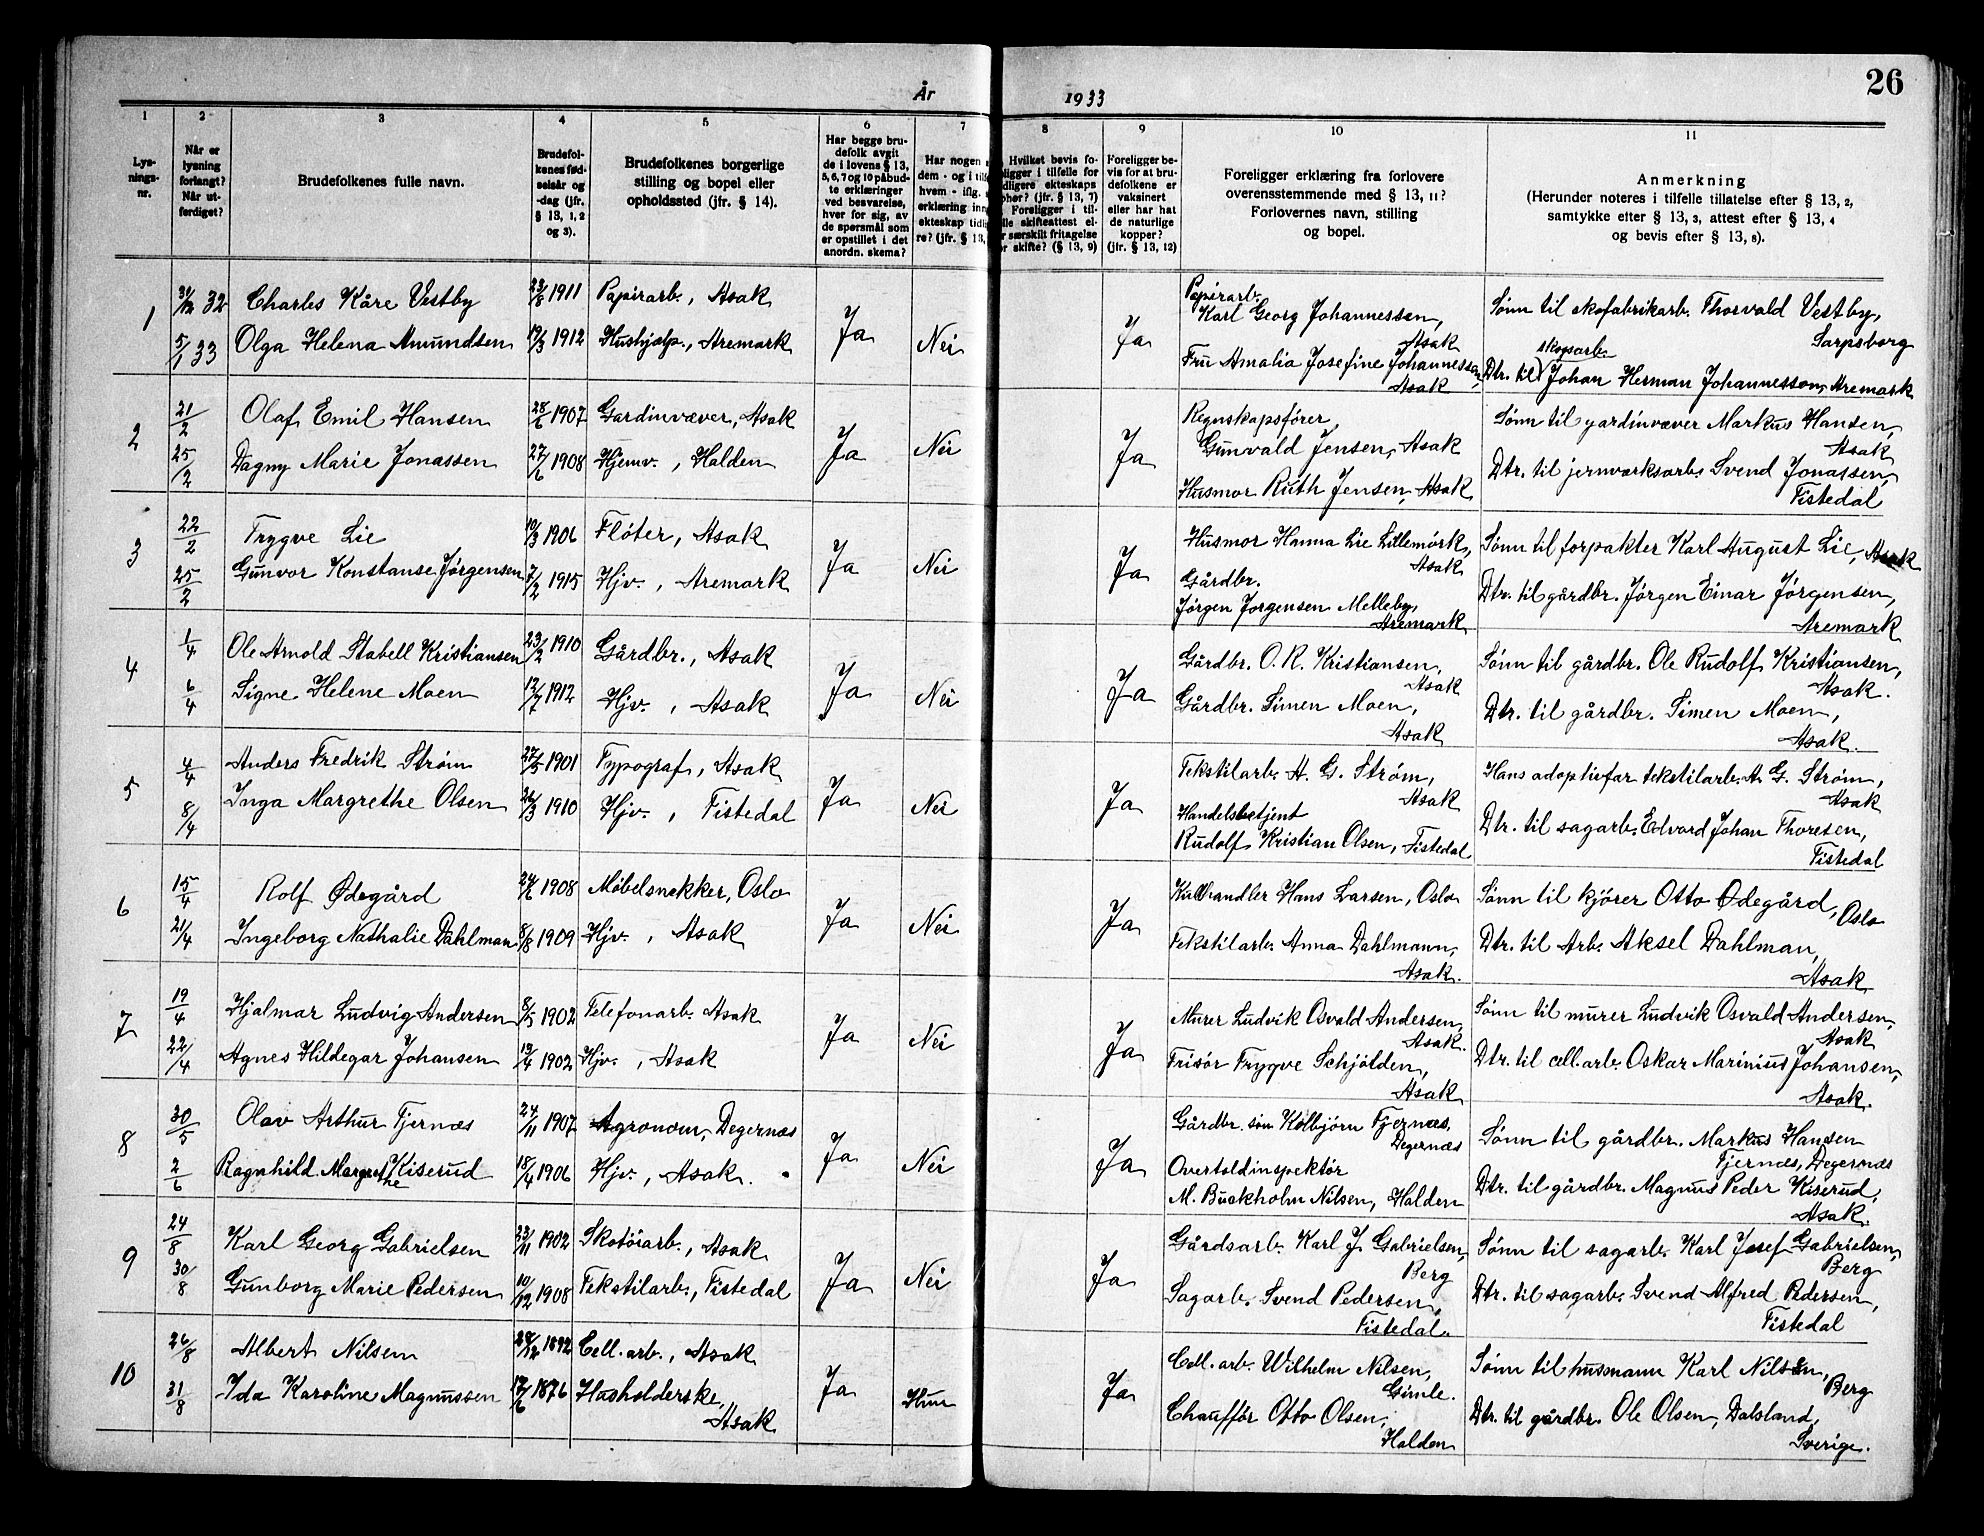 26
År 1933
1 2 3 4 5 6 7 8 9 10 11
Lys-
nings-
nr.
Når er
lysning
forlangt?
Når ut-
ferdiget?
Brudefolkenes fulle navn.
Brudefol-
kenes fød-
selsår og
-dag (jfr.
§ 13, 1, 2
og 3).
Brudefolkenes borgerlige
stilling og bopel eller
opholdssted (jfr. § 14).
Har begge bru-
defolk avgit
de i lovens § 13,
5, 6, 7 og 10 påbud-
te erklæringer
ved besvarelse,
hver for sig, av
de spørsmål som
er opstillet i det
anordn. skema?
Har nogen
dem - og i tilf
hvem - iflg.
erklæring inn
ekteskap tidli
re? (jfr. § 13,
Hvilket bevis fo-
ligger i tilfelle for
dligere ekteskaps
pher? (jfr. § 13, 7)
Foreligger i til-
lle skifteattest el-
r særskilt fritagelse
or skifte? (§ 13, 9)
Foreligger be-
vis for at bru-
defolkene er
vaksinert
eller har hat
de naturlige
kopper?
(jfr. § 13, 12)
Foreligger erklæring fra forlovere
overensstemmende med § 13, 11?
Forlovernes navn, stilling
og bopel.
Anmerkning
(Herunder noteres i tilfelle tillatelse efter § 13, 2,
samtykke etter § 13, 3, attest efter § 13, 4
og bevis efter § 13, 8).
1
31/12 32 Charles Kåre Vestby 23/8 1911 Papirarb., Asak
5/1 33 Olga Helena Amundsen 19/3 1912 Hushjælp., Aremark
Ja Nei Ja
Papirarb.
Karl Georg Johannessen,
Asak
Fru Amalia Josefine Johannessen,
Asak
Sønn til skofabrikarb. Thorvald Vestby,
Sarpsborg
skogsarb.
Dtr. til Johan Herman Johannesson, Aremark
2
21/2 Olaf Emil Hansen 1907 Gardinvæver, Asak
25/2 Dagny Marie Jonassen 27/6 1908 Hjemv., Halden
Ja Nei Ja
Regnskapsfører
Gunvald Jensen, Asak
Husmor Ruth Jensen, Asak
Sønn til gardinvæver Markus Hansen,
Asak
Dtr. til jernværksarb. Svend Jonassen,
Tistedal
3
22/2 Trygve Lie 10/3 1906 Fløter, Asak
25/2 Gunvor Konstanse Jørgensen 7/2 1915 Hjv., Aremark
Ja Nei Ja
Husmor Hanna Lie Lillemörk,
Asak
Gårdbr.
Jørgen Jorgensen Melleby,
Aremark
Sønn til forpakter Karl August Lie, Asak
Dtr. til gårdbr. Jørgen Einar Jørgensen,
Aremark
4
1/4 Ole Arnold Stabell Kristiansen 23/2 1910 Gårdbr., Asak
6/4 Signe Helene Moen 12/7 1912 Hjv., Asak
Ja Nei Ja
Gårdbr. O. R. Kristiansen,
Asak
Gårdbr. Simen Moen,
Asak
Sønn til gårdbr. Ole Rudolf Kristiansen,
Asak.
Dtr. til gårdbr. Simen Moen,
Asak.
5
4/4 Anders Fredrik Strøm 27/5 1901 Typograf, Asak
8/4 Inga Margrethe Olsen 26/3 1910 Hjv., Tistedal
Ja Nei Ja
Tekstilarb. A. G. Strøm,
Asak
Handelsbetjent
Rudolf Kristian Olsen, Tistedal
Hans adoptivfar tekstilarb. A. G. Strøm,
Asak
Dtr. til sagarb. Edvard Johan Thoresen,
Tistedal
6
15/4 Rolf Ødegård 1908 Møbelsnekker, Oslo
21/4 Ingeborg Nathalie Dahlman 8/8 1909 Hjv., Asak
Ja Nei Ja
Kullhandler Hans Larsen, Oslo
Tekstilarb. Anna Dahlmann,
Asak.
Sønn til kjörer Otto Ødegård,
Oslo
Dtr. til Arb. Aksel Dahlman,
Asak
7
19/4 Hjalmar Ludvig Andersen 8/5 1902 Telefonarb. Asak
22/4 Agnes Hildegar Johansen 13/4 1902 Hjv., Asak
Ja Nei Ja
Murer Ludvik Osvald Andersen,
Asak.
Frisör Trygve Schjölden,
Asak
Sønn til murer Ludvik Osvald Andersen,
Asak
Dtr. til cell.arb. Oskar Marinius Johansen,
Asak.
8
30/5 Olav Arthur Tjernæs 24/11 1907 Agronom, Degernæs
2/6 Ragnhild Margrethe Kiserud 18/4 1906 Hjv., Asak.
Ja Nei Ja
Gårdbr. sön Kolbjörn Tjernæs,
Degernæs
Overtoldinspektør
M. Buckholm Nilsen, Halden
Sønn til gårdbr. Markus Hansen
Tjernæs, Degernæs
Dtr. til gårdbr. Magnus Peder Kiserud,
Asak.
9
24/8 Karl Georg Gabrielsen 23/11 1902 Skotöiarb., Asak
30/8 Gunborg Marie Pedersen 10/12 1908 Tekstilarb., Tistedal
Ja Nei Ja
Gårdsarb. Karl J. Gabrielsen,
Berg
Sagarb. Svend Pedersen,
Tistedal.
Sønn til sagarb. Karl Josef Gabrielsen,
Berg
Dtr. til sagarb. Svend Alfred Pedersen,
Tistedal
10
26/8 Albert Nilsen 1892 Cell. arb., Asak
31/8 Ida Karoline Magnussen 17/6 1876 Husholderske,
Asak
Ja Hun Ja
Cell. arb. Wilhelm Nilsen,
Gimle.
Chaufför Otto Olsen,
Halden
Sønn til husmann Karl Nilsen,
Berg
Dtr. til gårdbr. Ole Olsen, Dalsland,
Sverige.